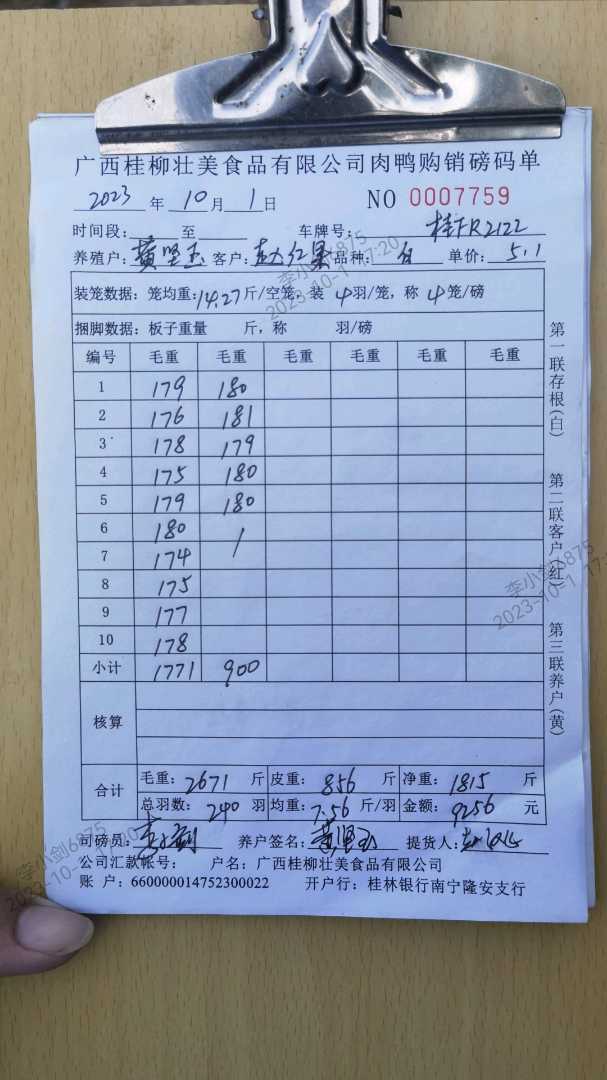 广西桂柳壮美食品有限公司肉鸭购销磅码单
2023 年 10 月 1 日 NO 0007759
时间段: 至 车牌号: 桂FR2122
养殖户: 黄坚玉 客户: 赵红果 品种: 白 单价: 5.1
装笼数据: 笼均重: 14.27 斤/空笼, 装 4 羽/笼, 称 4 笼/磅
捆脚数据: 板子重量 斤, 称 羽/磅
编号 毛重 毛重 毛重 毛重 毛重 毛重
1 179 180
2 176 181
3 178 179
4 175 180
5 179 180
6 180
7 174
8 175
9 177
10 178
小计 1771 900
核算
合计 毛重: 2671 斤 皮重: 856 斤 净重: 1815 斤
总羽数: 240 羽 均重: 7.56 斤/羽 金额: 9256 元
司磅员: 养户签名: 黄坚玉 提货人:
公司汇款帐号: 户名: 广西桂柳壮美食品有限公司
账 户: 660000014752300022 开户行: 桂林银行南宁隆安支行
第一联存根(白)
第二联客户(红)
第三联养户(黄)
李小剑6875
2023-10-1 17:20
李小剑6875
2023-10-1 17:
李小剑6875
2023-10-1 17:20